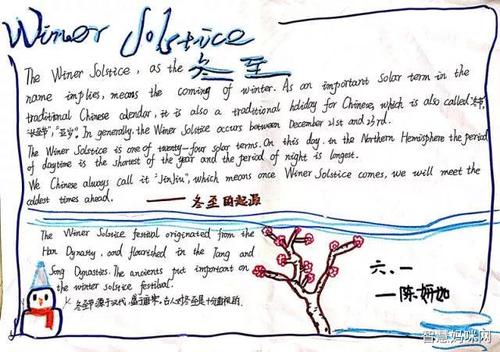 Winer Solstice
The Winer Solstice, as the 冬至
name implies, means the coming of winter. As an important solar term in the
traditional Chinese calendar, it is also a traditional holiday for Chinese, which is also called "冬节",
"长至节", "亚岁". In generally, the Winer Solstice occurs between December 21st and 23rd.
The Winer Solstice is one of twenty-four solar terms. On this day, in the Northern Hemisphere the period
of daytime is the shortest of the year and the period of night is longest.
We Chinese always call it "JinJiu", which means once Winer Solstice comes, we will meet the
coldest times ahead. ——冬至的起源
The Winer Solstice festival originated from the
Han Dynasty, and flourished in the Tang and
Song Dynasties. The ancients put important on
the winter solstice festival.
冬至节源于汉代,盛于唐宋,古人对冬至是十分重视的。
六、一
——陈妍
智慧妈咪网